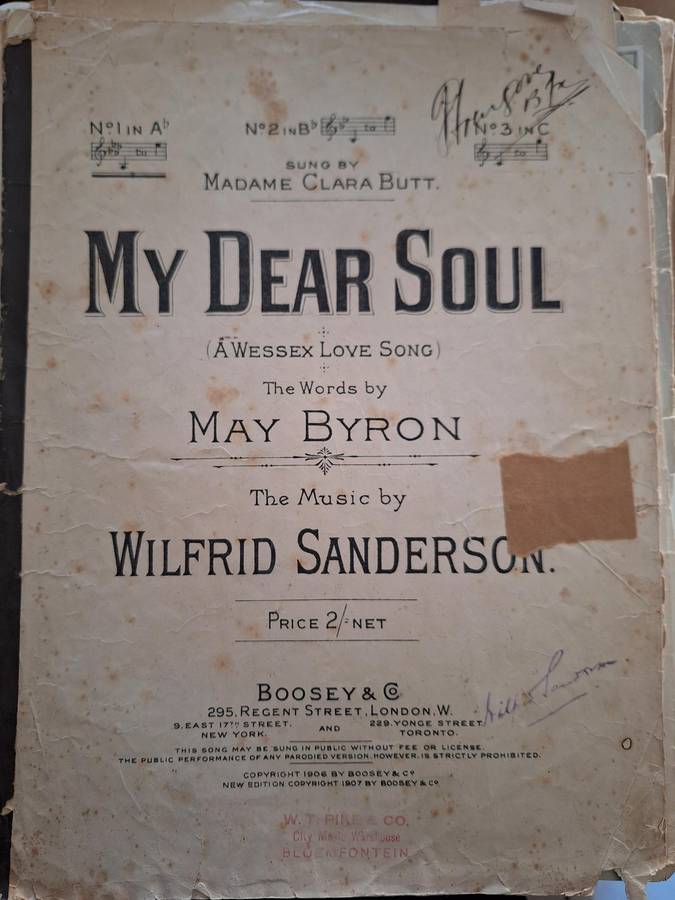 No. 1 IN A♭
No. 2 IN B♭
No. 3 IN C
SUNG BY
MADAME CLARA BUTT.
MY DEAR SOUL
(A WESSEX LOVE SONG)
The Words by
MAY BYRON
The Music by
WILFRID SANDERSON.
PRICE 2/- NET
BOOSEY & Co.
295, REGENT STREET, LONDON, W.
9, EAST 17TH STREET, NEW YORK.
AND
229, YONGE STREET, TORONTO.
THIS SONG MAY BE SUNG IN PUBLIC WITHOUT FEE OR LICENSE.
THE PUBLIC PERFORMANCE OF ANY PARODIED VERSION, HOWEVER, IS STRICTLY PROHIBITED.
COPYRIGHT 1906 BY BOOSEY & Co
NEW EDITION COPYRIGHT 1907 BY BOOSEY & Co
W. T. PIKE & CO.
City Music Warehouse
BLOEMFONTEIN